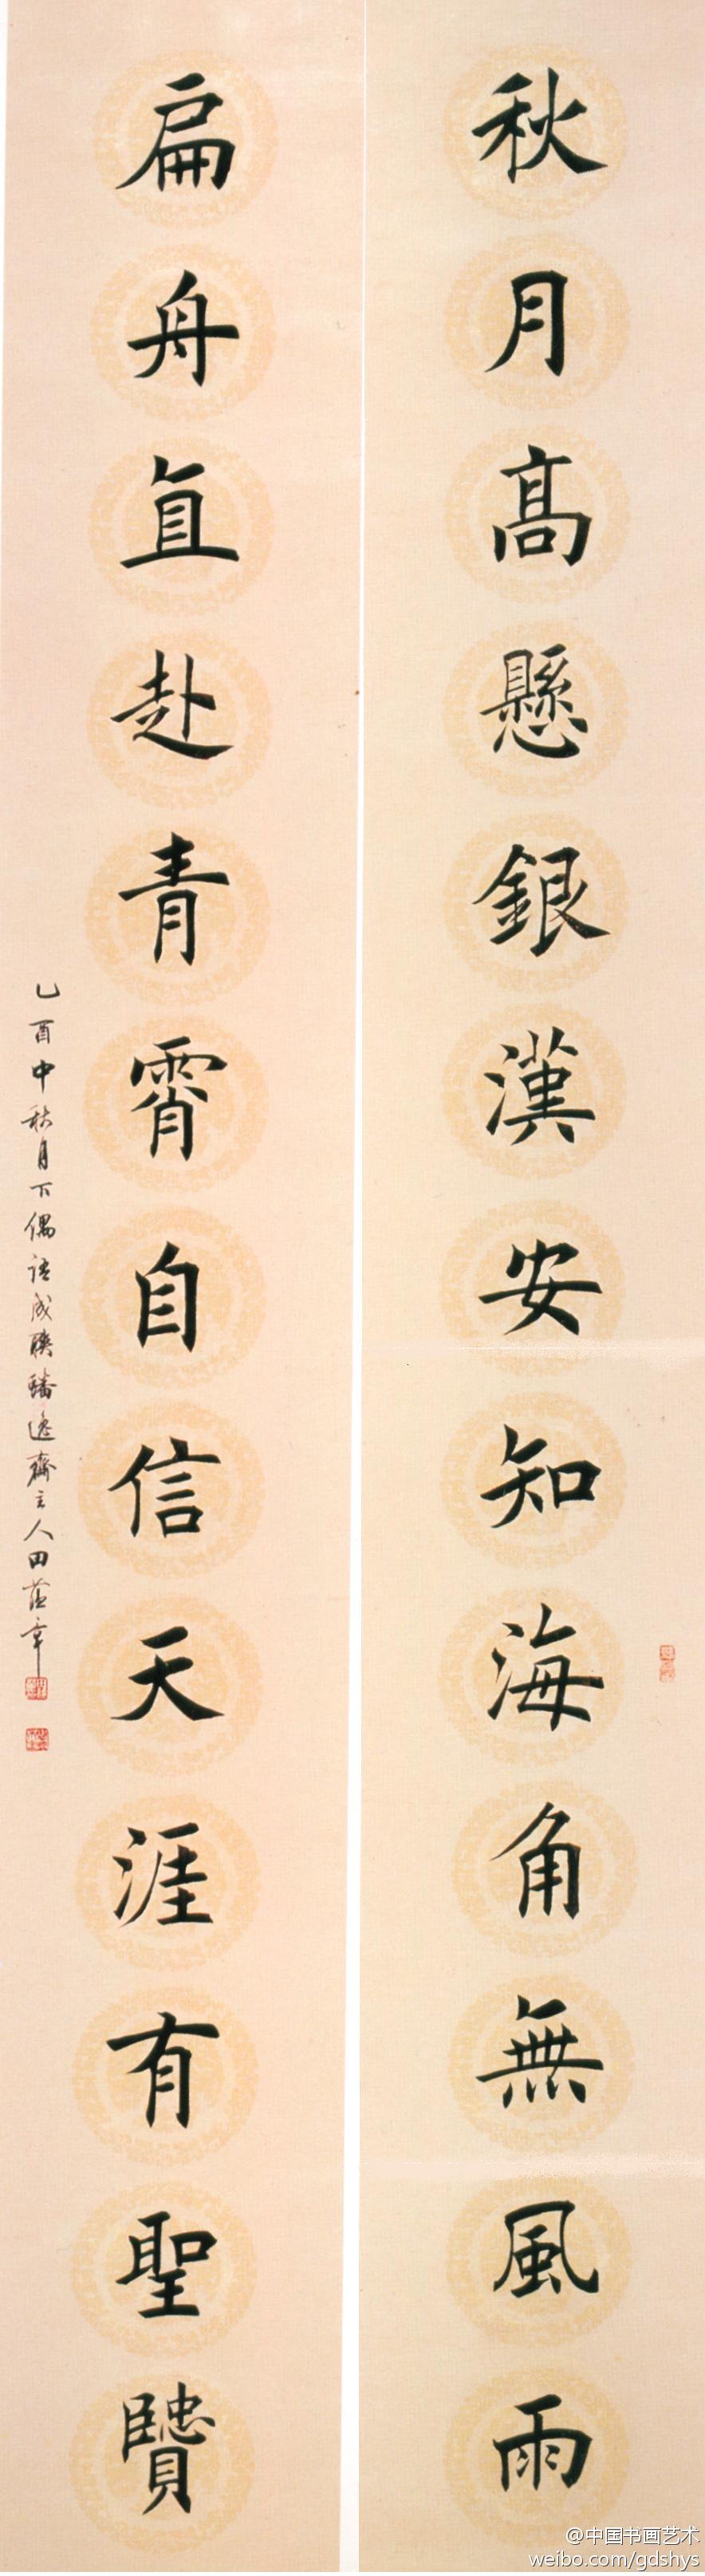 秋月高懸銀漢安知海角無風雨
扁舟直赴青霄自信天涯有聖賢
乙酉中秋月下偶語成聯 逸齋主人田蘊章
@中国书画艺术
weibo.com/gdshys